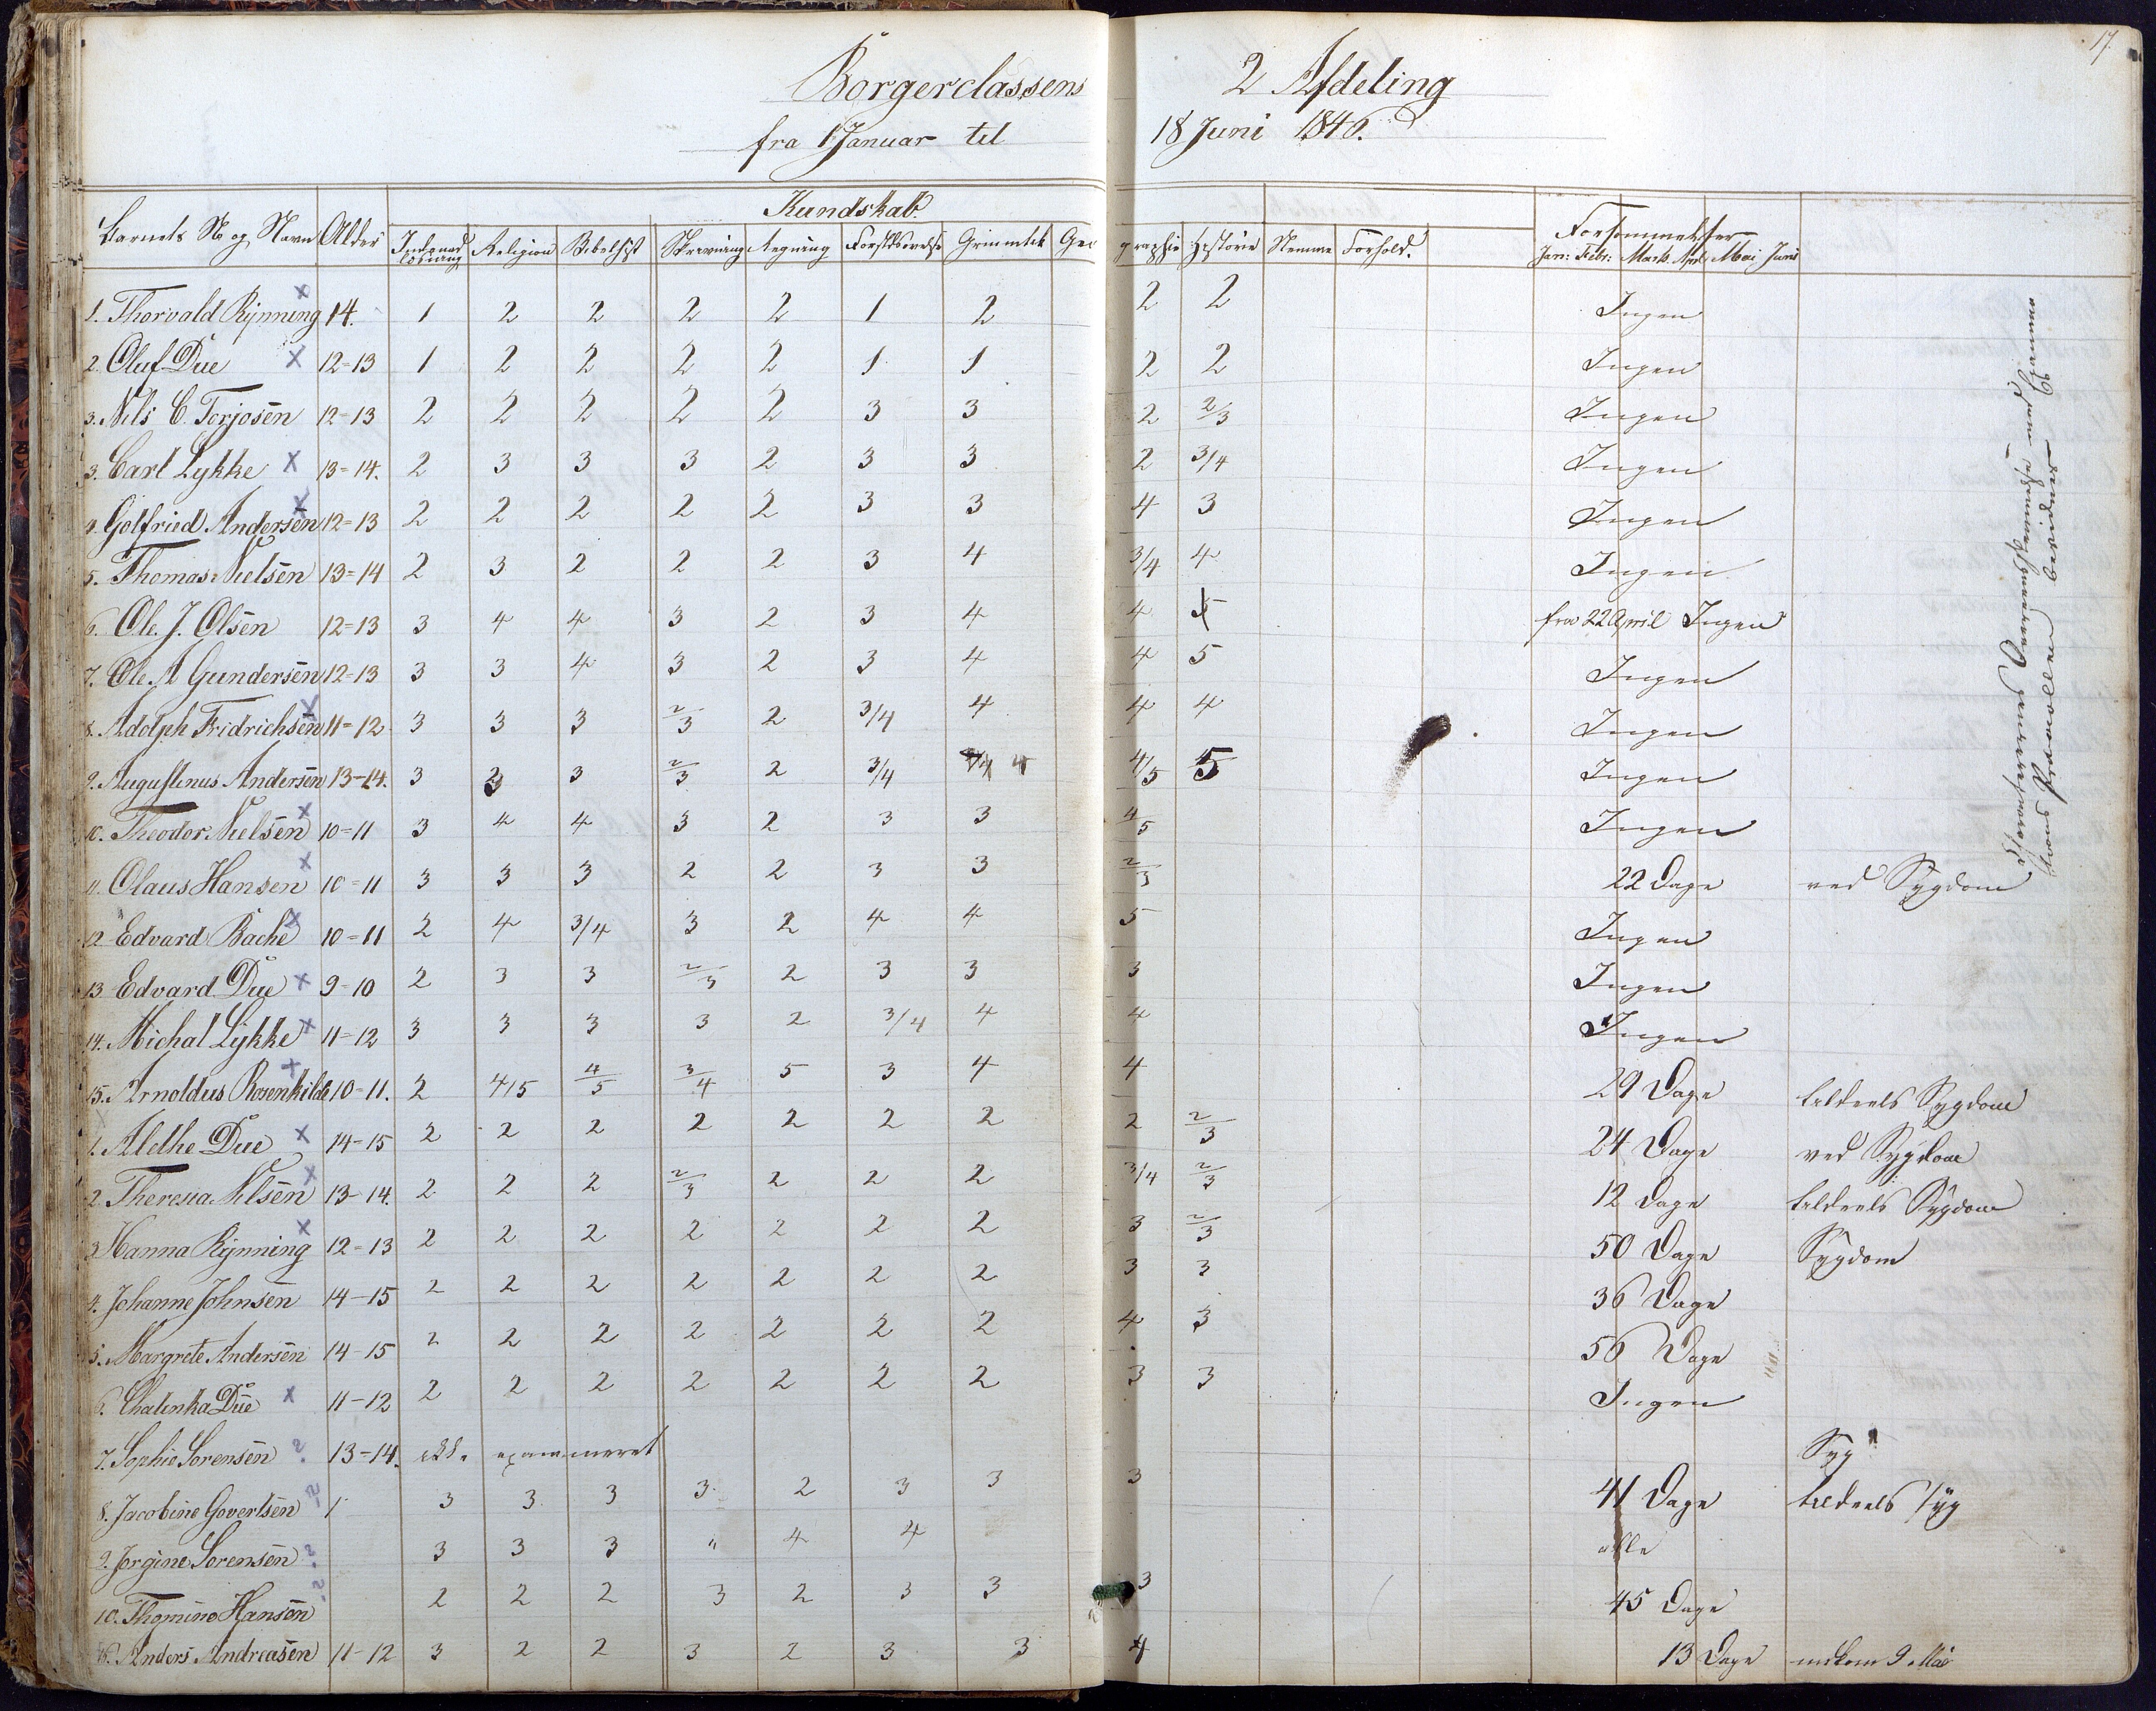 17.
Borgerclassens 2 Afdeling
fra 1 Januar til 18 Juni 1846.
Kundskab.
Barnets No og Navn Alder Religion Bibelhist Skrivning Regning Geographie Historie Nemme Forhold. Forsømmelser
Jan: Febr: Marts April Mai Juni
1. Thorvald Rynning x 14. 1 2 2 2 2 1 2 2 2 Ingen
2. Oluf Due x 12=13 1 2 2 2 2 1 1 2 2 Ingen
3. Nils C. Torjosen 12=13 2 2 2 2 2 3 3 2 2/3 Ingen
3. Carl Lykke x 13=14. 2 3 3 3 2 3 3 2 3/4 Ingen
4. Golfried Andersen x 12=13 2 2 2 2 2 3 3 4 3 Ingen
5. Thomas Nielsen 13=14 2 3 2 2 2 3 4 3/4 4 Ingen
6. Ole. J. Olsen 12=13 3 4 4 3 2 3 4 4 5 fra 22 April Ingen
7. Ole. A Gundersen 12=13 3 3 4 3 2 3 4 4 5 Ingen
8. Adolph Fridrichsen x 11=12 3 3 3 2/3 2 3/4 4 4 4 Ingen
9. Augustinus Andersen 13-14. 3 3 3 2/3 2 3/4 4 4/5 5 Ingen
10. Theodor Nielsen x 10=11 3 4 4 3 2 3 3 4/5 Ingen
11. Olaus Hansen x 10=11 3 3 3 2 2 3 3 2/3 22 Dage ved Sygdom
12 Edvard Bache x 10=11 2 4 3/4 3 2 4 4 5 Ingen
13 Edvard Due x 9-10 2 3 3 2/3 2 3 3 3 Ingen
14. Michal Lykke x 11=12 3 3 3 3 2 3/4 4 4 Ingen
15. Arnoldus Rosenkilde x 10-11. 2 4/5 4/5 3/4 5 3 4 4 29 Dage tildeels Sygdom
1. Alethe Due x 14-15 2 2 2 2 2 2 2 2 2/3 24 Dage ved Sygdom
2. Theresia Nilsen x 13-14. 2 2 2 2/3 2 2 2 3/4 2/3 12 Dage tildeels Sygdom
3 Hanna Rynning x 12=13 2 2 2 2 2 2 2 3 2/3 50 Dage Sygdom
4. Johanne Johnsen 14-15 2 2 2 2 2 2 2 3 3 36 Dage
5. Margrete Andersen 14-15 2 2 2 2 2 2 2 4 3 56 Dage
6. Chatinka Due x 11-12 2 2 2 2 2 2 2 3 3 Ingen
7. Sophie Sorensen ? 13-14. ikke examineret Syg
8. Jacobine Govertsen ? 1 3 3 3 3 2 3 3 3 41 Dage tildeels syg
9. Jorgine Sorensen ? 3 3 3 " 4 4 alle
10. Thomine Hansen ? 2 2 2 3 2 3 3 3 45 Dage
16. Anders Andreasen 11-12 3 2 2 3 2 3 3 4 13 Dage indkom 9 Mai